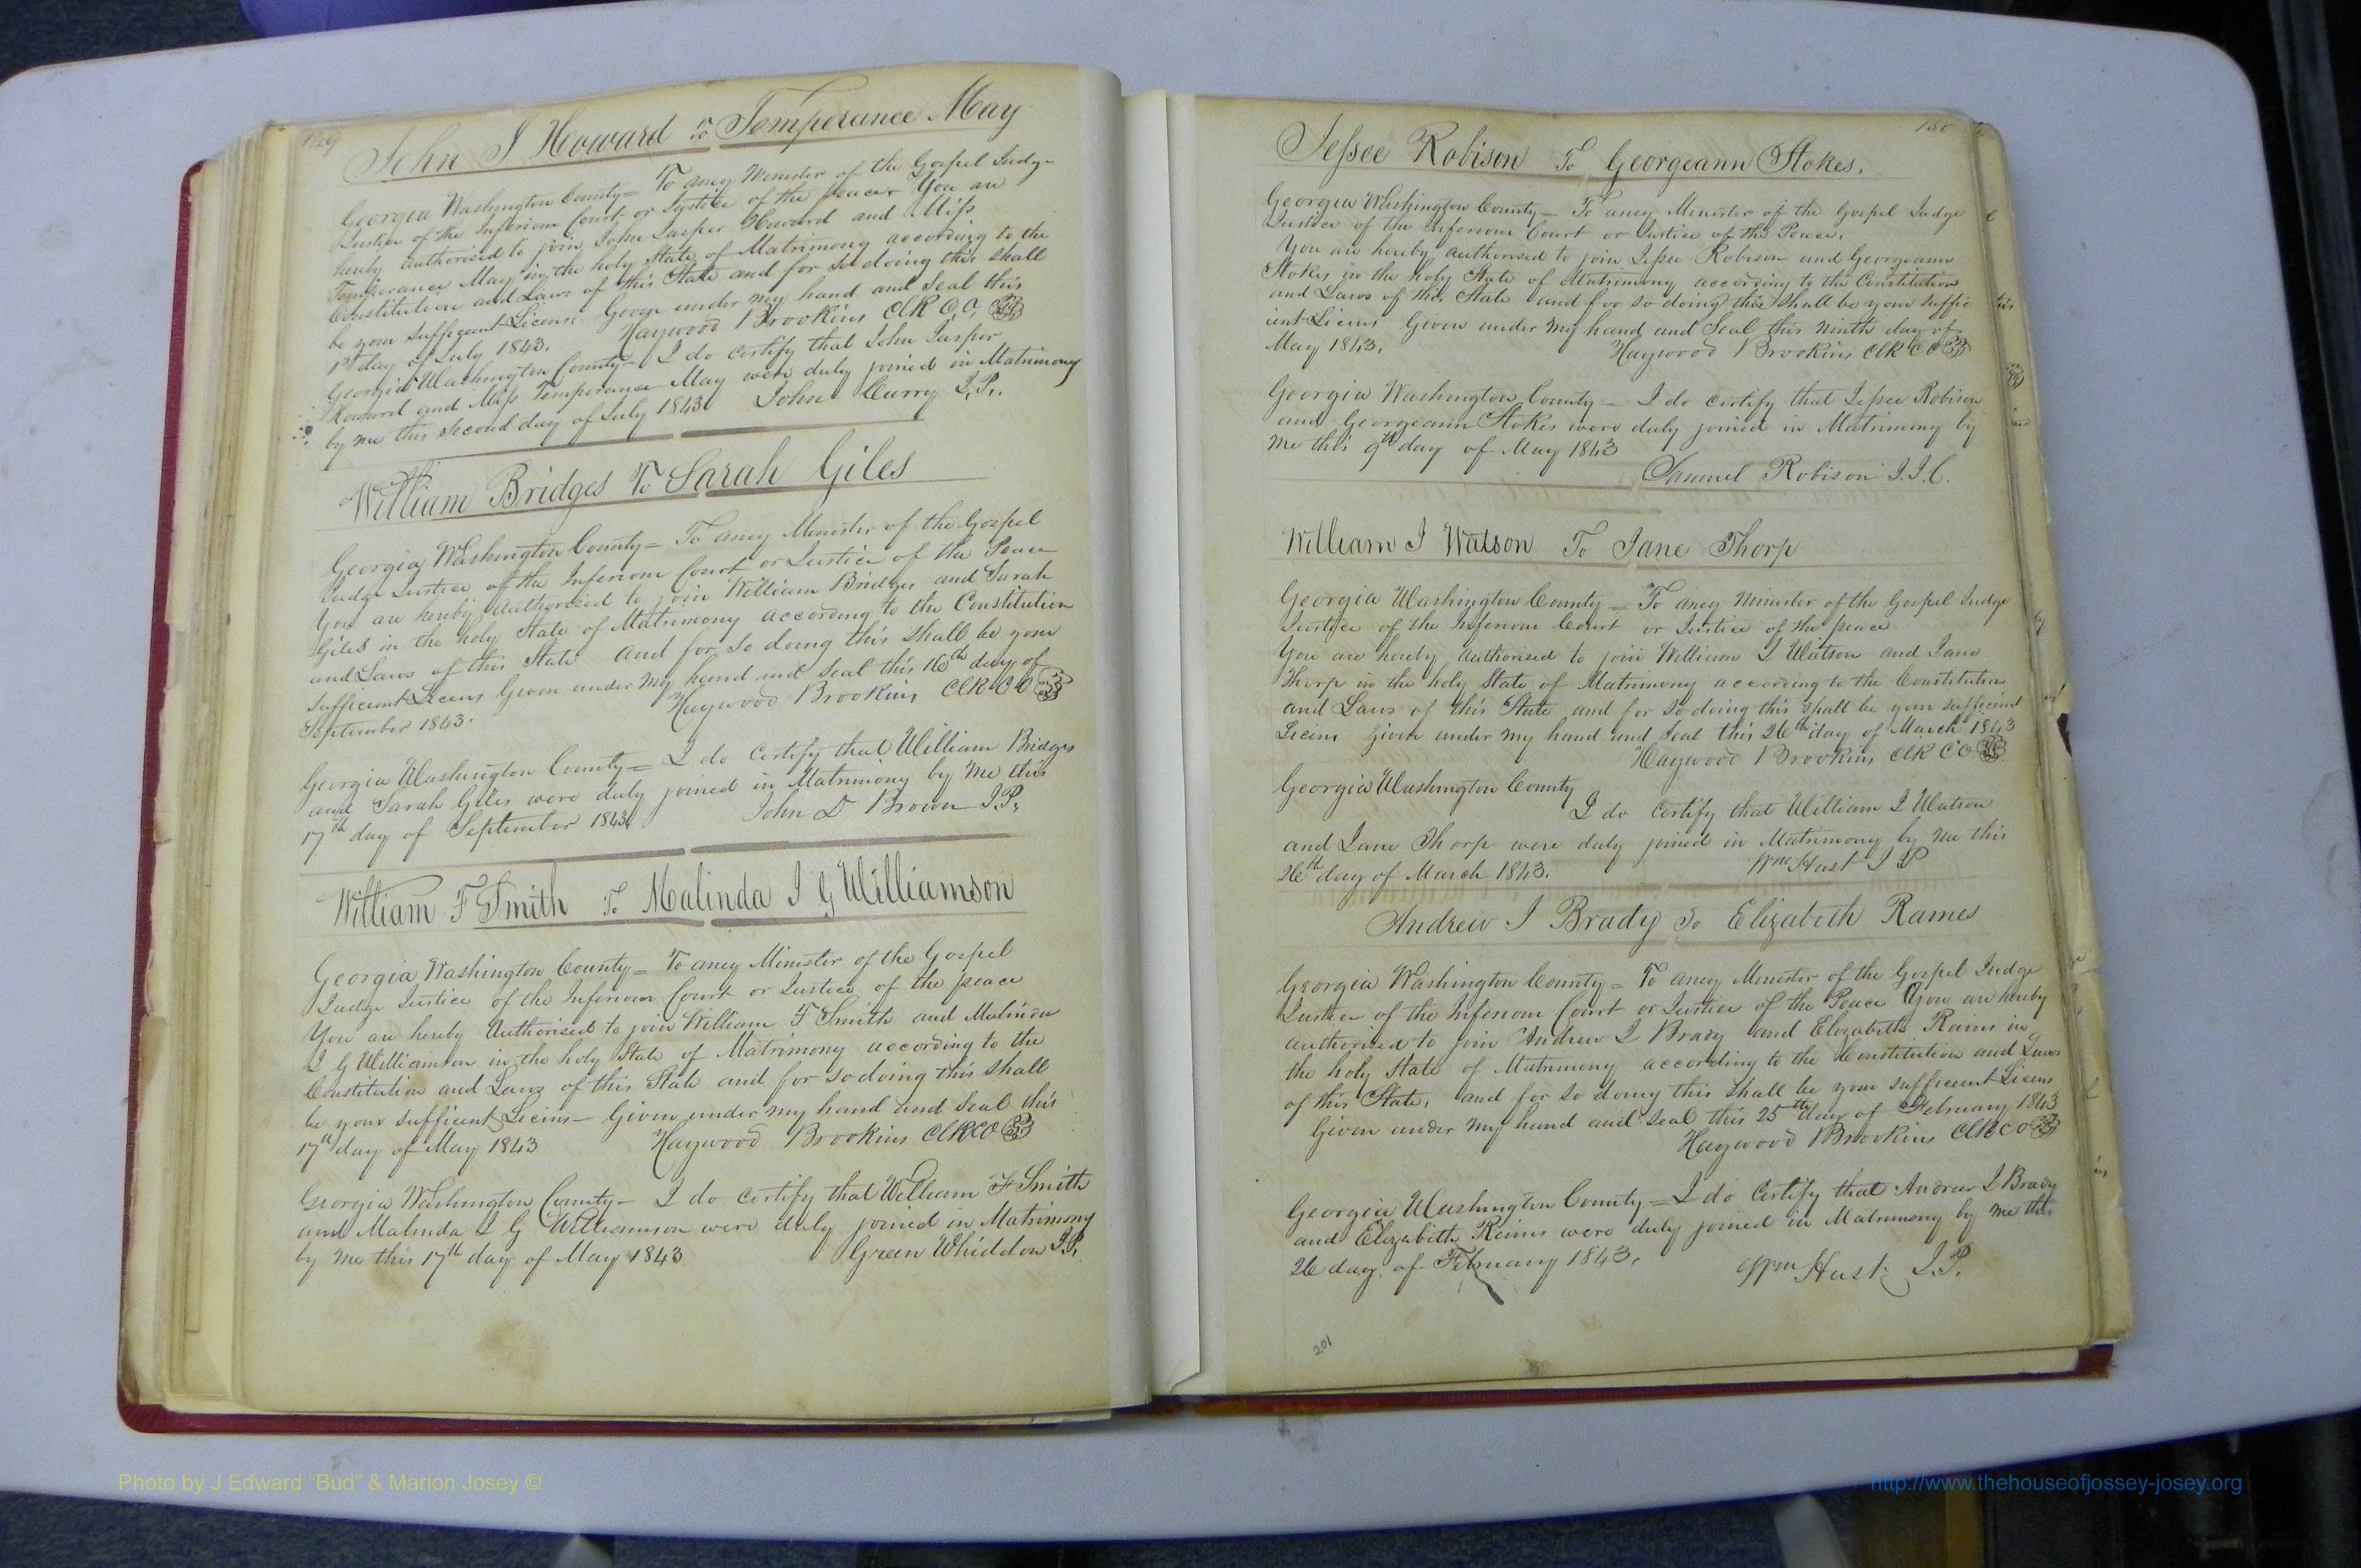 129
John J Howard To Temperance May
Georgia Washington County = To aney Minister of the Gospel Judge
Justice of the Inferiour Court or Justice of the peace You are
hereby authorised to join John Jasper Howard and Miss
Temperance May in the holy State of Matrimony according to the
Constitution and Laws of this State and for So doing this shall
be your sufficent Licens Given under my hand and Seal this
1st day of July 1843. Haywood Brookins ClK C.O.
Georgia Washington County - I do certify that John Jasper
Howard and Miss Temperance May were duly joined in Matrimony
by me this second day of July 1843 John Curry J.P.
William Bridges To Sarah Giles
Georgia Washington County = To aney Minister of the Gospel
Judge Justice of the Inferiour Court or Justice of the Peace
You are hereby Authorised to join William Bridges and Sarah
Giles in the holy State of Matrimony according to the Constitution
and Laws of this State and for so doing this shall be your
sufficent Licens Given under my hand and seal this 16th day of
September 1843. Haywood Brookins ClK C O
Georgia Washington County = I do certify that William Bridges
and Sarah Giles were duly joined in Matrimony by me this
17th day of September 1843 John D Brown J.P.
William F Smith To Malinda J G Williamson
Georgia Washington County = To aney Minister of the Gospel
Judge Justice of the Inferiour Court or Justice of the peace
You are hereby Authorised to join William F Smith and Malinda
J G Williamson in the holy State of Matrimony according to the
Constitution and Laws of this State and for so doing this shall
be your sufficent Licens - Given under my hand and Seal this
17th day of May 1843 Haywood Brookins ClK C O
Georgia Washington County - I do certify that William F Smith
and Malinda J G Williamson were duly joined in Matrimony
by me this 17th day of May 1843 Green Whiddon J.P.
150
Jessee Robison To Georgeann Stokes.
Georgia Washington County - To aney Minister of the Gospel Judge
Justice of the Inferiour Court or Justice of the Peace,
You are hereby authorised to join Jessee Robison and Georgeann
Stokes in the holy State of Matrimony according to the Constitution
and Laws of this State and for so doing this shall be your suffic
ient Licens Given under my hand and Seal this ninth day of
May 1843. Haywood Brookins ClK C O
Georgia Washington County - I do certify that Jessee Robison
and Georgeann Stokes were duly joined in Matrimony by
me this 9th day of May 1843
Samuel Robison J.I.C.
William J Watson To Jane Thorp
Georgia Washington County - To aney Minister of the Gospel Judge
Justice of the Inferiour Court or Justice of the peace
You are hereby authorised to join William J Watson and Jane
Thorp in the holy State of Matrimony according to the Constitution
and Laws of this State and for so doing this shall be your sufficient
Licens Given under my hand and seal this 26th day of March 1843
Haywood Brookins ClK C O
Georgia Washington County
I do certify that William J Watson
and Jane Thorp were duly joined in Matrimony by me this
26th day of March 1843. Wm Hust J P
Andrew J Brady To Elizabeth Raines
Georgia Washington County = To aney Minister of the Gospel Judge
Justice of the Inferiour Court or Justice of the Peace You are hereby
authorised to join Andrew J Brady and Elizabeth Rains in
the holy State of Matrimony according to the Constitution and Laws
of this State, and for so doing this shall be your sufficcent Licens
Given under my hand and seal this 25th day of February 1843
Haywood Brookins ClK C O
Georgia Washington County = I do Certify that Andrew J Brady
and Elizabeth Rains were duly joined in Matrimony by me this
26 day of February 1843. Wm Hust J.P.
201
Photo by J Edward “Bud” & Marion Josey ©
http://www.thehouseofjossey-josey.org